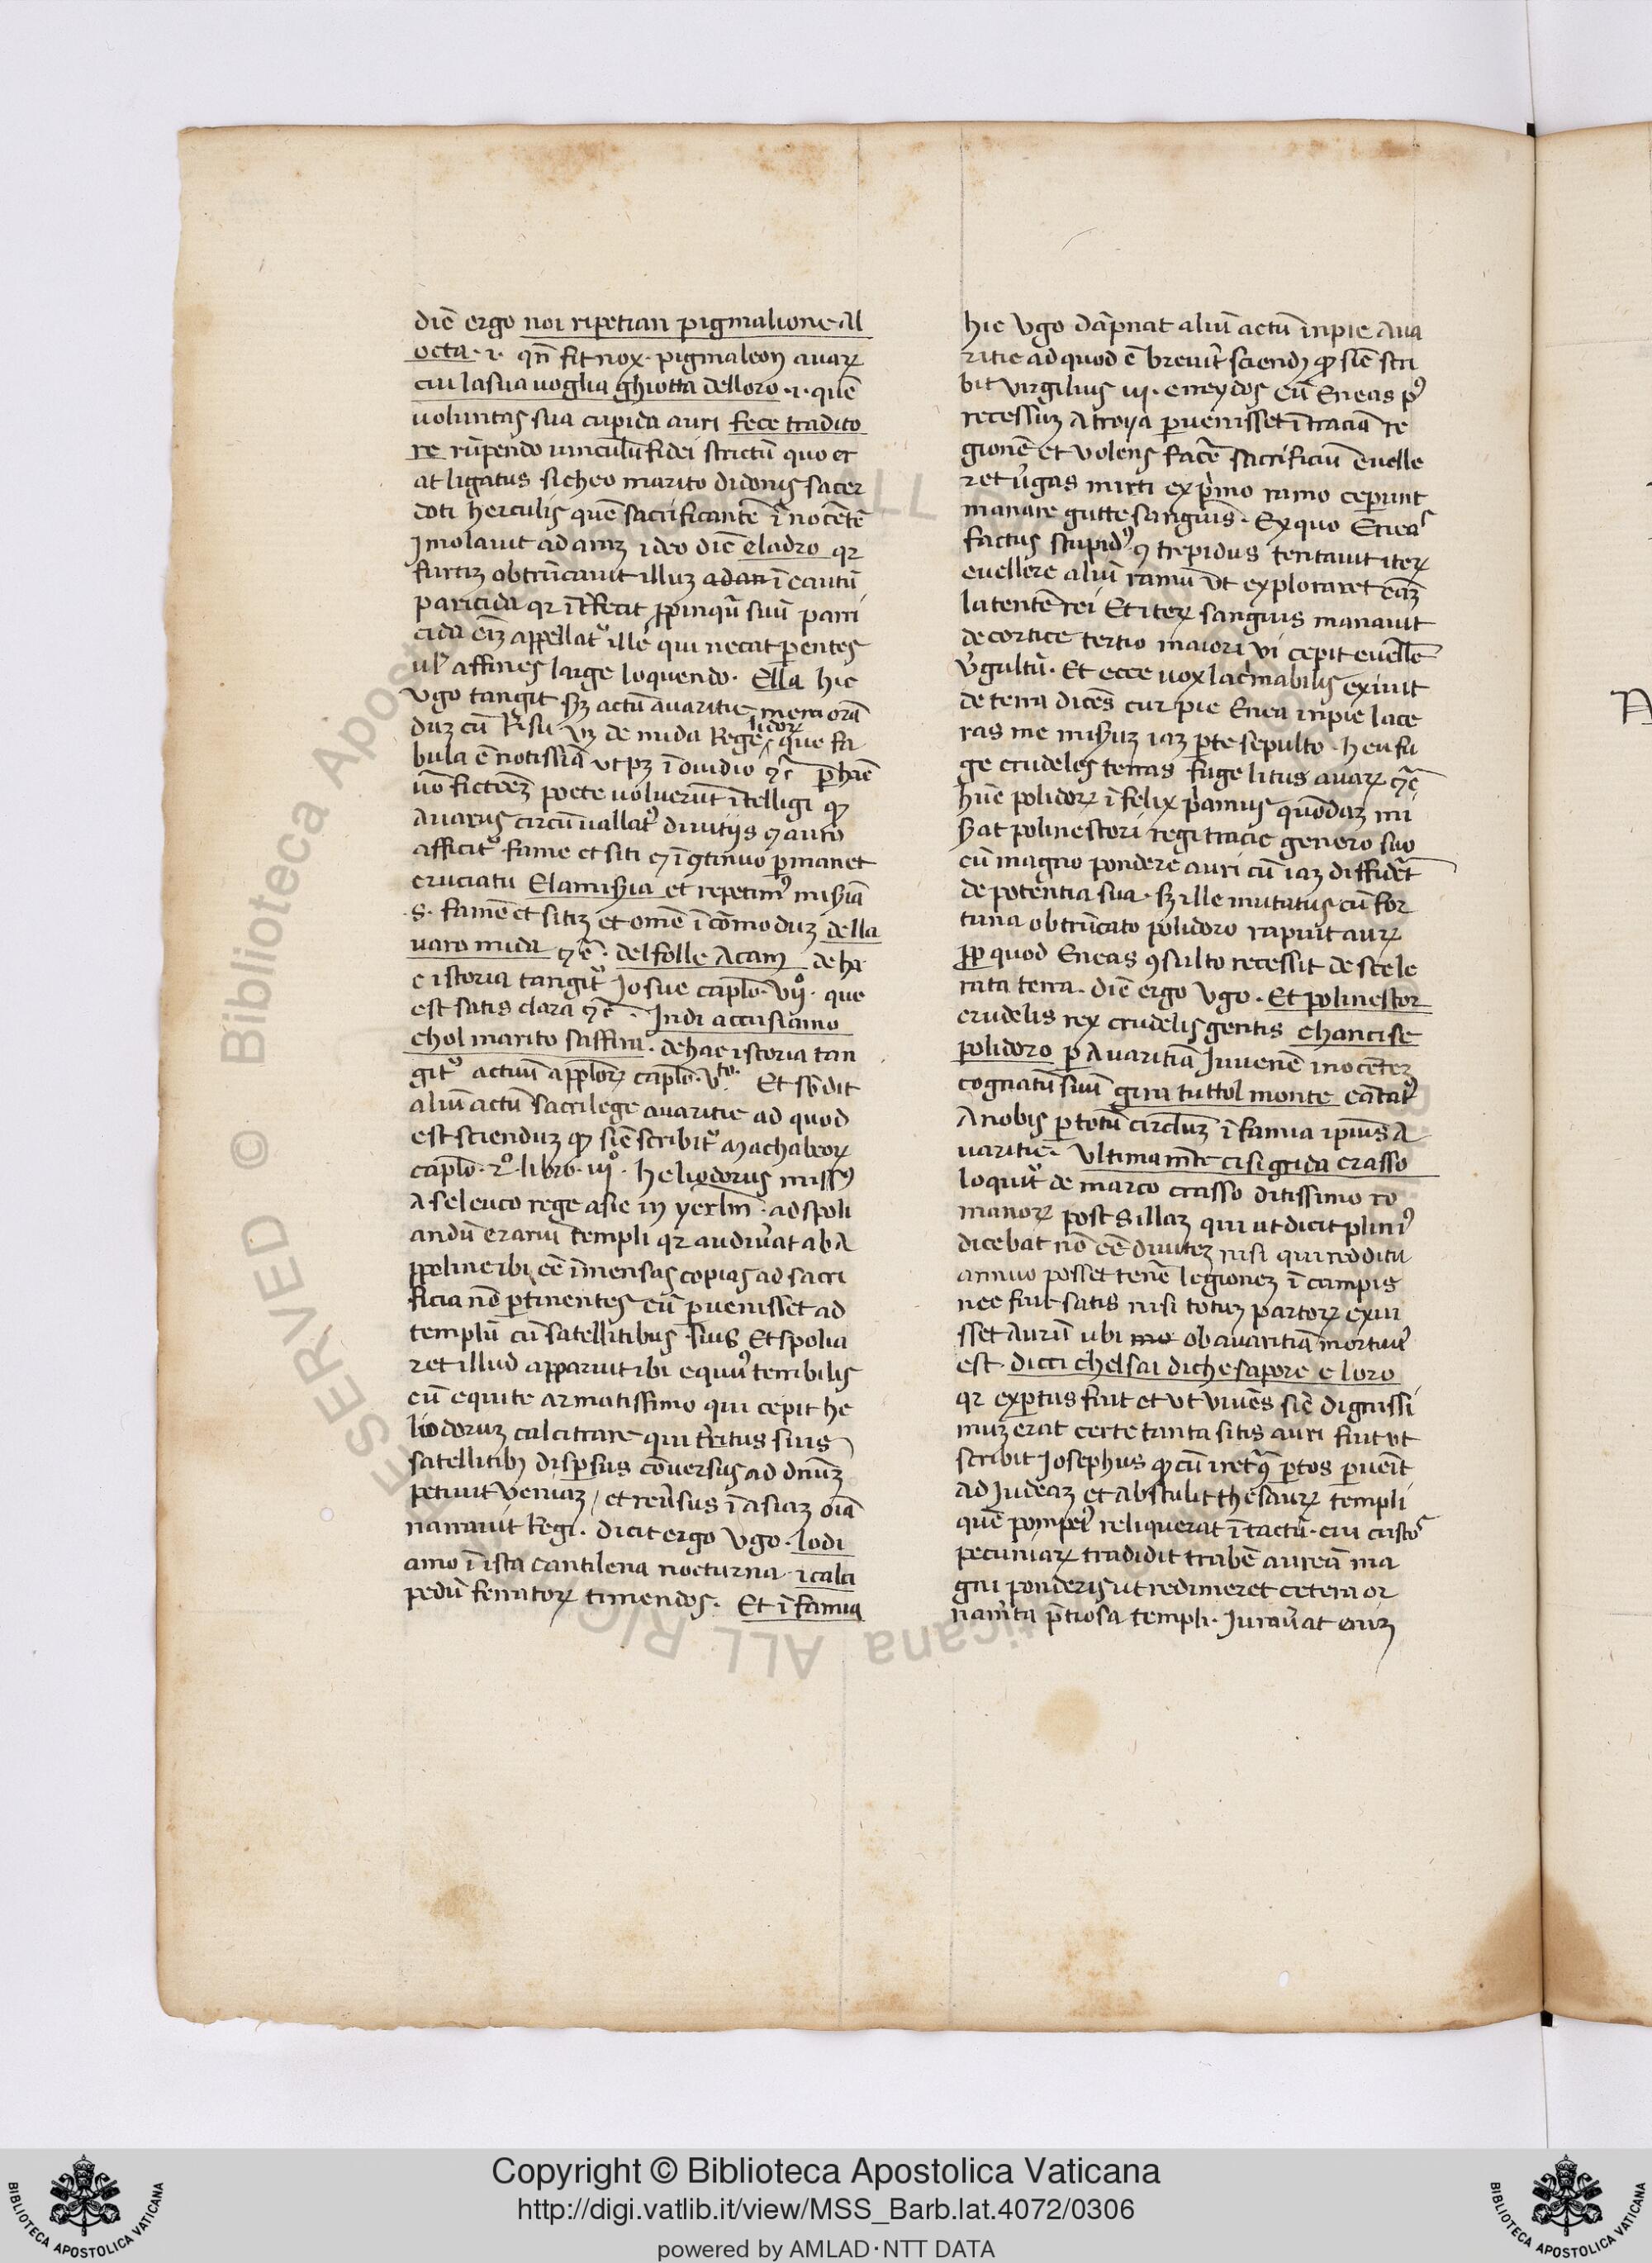 diē ergo noi ripetian pigmalione al
octa · i · qn̄ fit nox · pigmaleon avarꝝ
cui la sua voglia ghiotta delloro · i · quē
voluntas sua cupida auri fece tradito
re rūpendo vinculū fidei strictū quo er
at ligatus sicheo marito didonis sacer
doti herculis quē sacrificantē īnocētē
Imolavit ad arāȝ ideo diē e ladro qr
furtiȝ obtrūcavit illuȝ ad an īcautū
paricida qr īt̄fecit ꝓpinqū suū parri
cida eīȝ appellatᵘ ille qui necat pentes
ul̄ affines large loquendo · Ella hic
Ugo tangit sȝ actū avaritie memorā
duȝ cū Risu uȝ de mida Rege lidorꝝ que fa
bula ē notissīa ut pȝ ī ovidio ⁊c̄ p hāc
uō fictōeȝ poete voluerūt ītelligi ꝙ
Avarus circūvallatᵘ divitijs ⁊ auro
afficitᵘ fame et siti ⁊ ī ꝯtinuo pmanet
cruciatu Elamisia et repetimᵘ misīa
· s · famē et sitiȝ et omē īcōmoduȝ della
varo mida ⁊c̄ · del folle Acam de ha
c istoria tangitᵘ Josue caplo · vijº · que
est satis clara ⁊c̄ · Indi accusiamo
chol marito saffira · de hac istoria tan
gitᵘ actuū applorꝝ caplo · vto · Et s̄bdit
aliū actū sacrilege avaritie ad quod
est sciendūȝ ꝙ sic̄ scribitᵘ Machabeorꝝ
caplo · 2º · libro · iijº · heliodorus missᵘ
A seleuco rege asie in yerlm̄ · ad spoli
andū erariū templi qr audiv̄at ab A
ppoline ibi eē īmensas copias ad sacri
ficia nō ptinentes cū pvenisset ad
templū cū satellitibus suis Et spolia
ret illud apparuit ibi equᵘ terribilis
cū equite armatissimo qui cepit he
liodorum calcitrare qui t̄ritus suis
satellitibȝ dispsus cōversus ad dn̄uȝ
petivit veniaȝ / et rev̄sus ī asiaȝ oīa
narravit Regi · dicit ergo Ugo · lodi
amo ī ista cantilena nocturna · i calci
pedū ferratorꝝ timendos · Et ī famia
hic Ugo dāpnat aliū actū inpie Ava
ritie ad quod ē brevit̄ sciendȝ ꝙ sic̄ scri
bit Virgilius iij · eneydos cū Eneas pᵘ
recessuȝ A troya pvenisset ī traciā re
gionē et volens facē sacrificiū evelle
ret v̄gas mirti ex p̄mo ramo ceperunt
manare gutte sanguis · Ex quo Eneas
factus stupidᵘ ⁊ trepidus tentavit iterꝝ
evellere aliū ramū ut exploraret cāȝ
latentē rei Et iterꝝ sanguis manavit
de cortice tertio maiori vi cepit evellē
v̄gultū · Et ecce vox lacrīmabilis exivit
de terra dicēs cur pie Enea inpie lace
ras me miseruȝ iaȝ pte sepulto · heu fu
ge crudeles terras fuge litus avarꝝ ⁊c̄
hūc polidorꝝ īfelix p̄amus quōdaȝ mi
s̄at polinestori regi tracie genero suo
cū magno pondere auri cū iaȝ diffidēt
de potentia sua · sȝ ille mutatus cū for
tuna obtrūcato polidoro rapuit aurꝝ
ꝓp quod Eneas ꝯsulto recessit de scele
rata terra · diē ergo Ugo · Et polinestor
crudelis rex crudelis gentis chancise
polidoro p Avaritiā Juvenē inocēteȝ
cognatū suū gira tuttol monte cātatᵘ
A nobis p totū circluȝ ī famia ipius A
varitie · Ultimamt̄e ci si grida crasso
loquit̄ de marco crasso ditissimo ro
manorꝝ post sillaȝ qui ut dicit plinᵘ
dicebat nō eē diviteȝ nisi qui redditu
annuo posset tenē legionēȝ ī campis
nec fuit satis nisi totuȝ partorꝝ exiu
sset Aurū ubi mo ob avaritiā mortuᵘ
est · dicci chel sai di che sapore e loro
qr exptus fuit et ut vivēs sic̄ dignissi
muȝ erat certe tanta sitis auri fuit ut
scribit Josephus ꝙ cū iret ꝯ ptos pvēit
ad Judeaȝ et abstulit thesaurꝝ templi
quē pompeᵘ reliquerat ītactū · cui custos
pecuniarꝝ tradidit trabē aureā ma
gni ponderis ut redimeret cetera or
namt̄a p̄tiosa templi · Jurav̄at eniȝ
A
Copyright © Biblioteca Apostolica Vaticana
http://digi.vatlib.it/view/MSS_Barb.lat.4072/0306
powered by AMLAD·NTT DATA
BIBLIOTECA APOSTOLICA VATICANA
BIBLIOTECA APOSTOLICA VATICANA